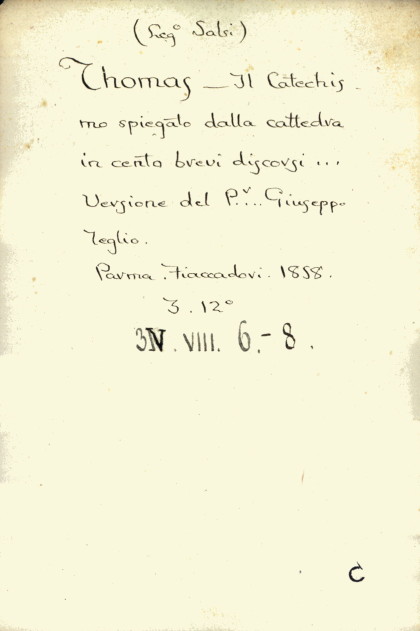 (Leg° Salsi)
Thomas — Il Catechis-
mo spiegato dalla cattedra
in cento brevi discorsi ...
Versione del P.r... Giuseppe
Teglio.
Parma. Fiaccadori. 1858.
3. 12°
3N. VIII. 6.-8.
C